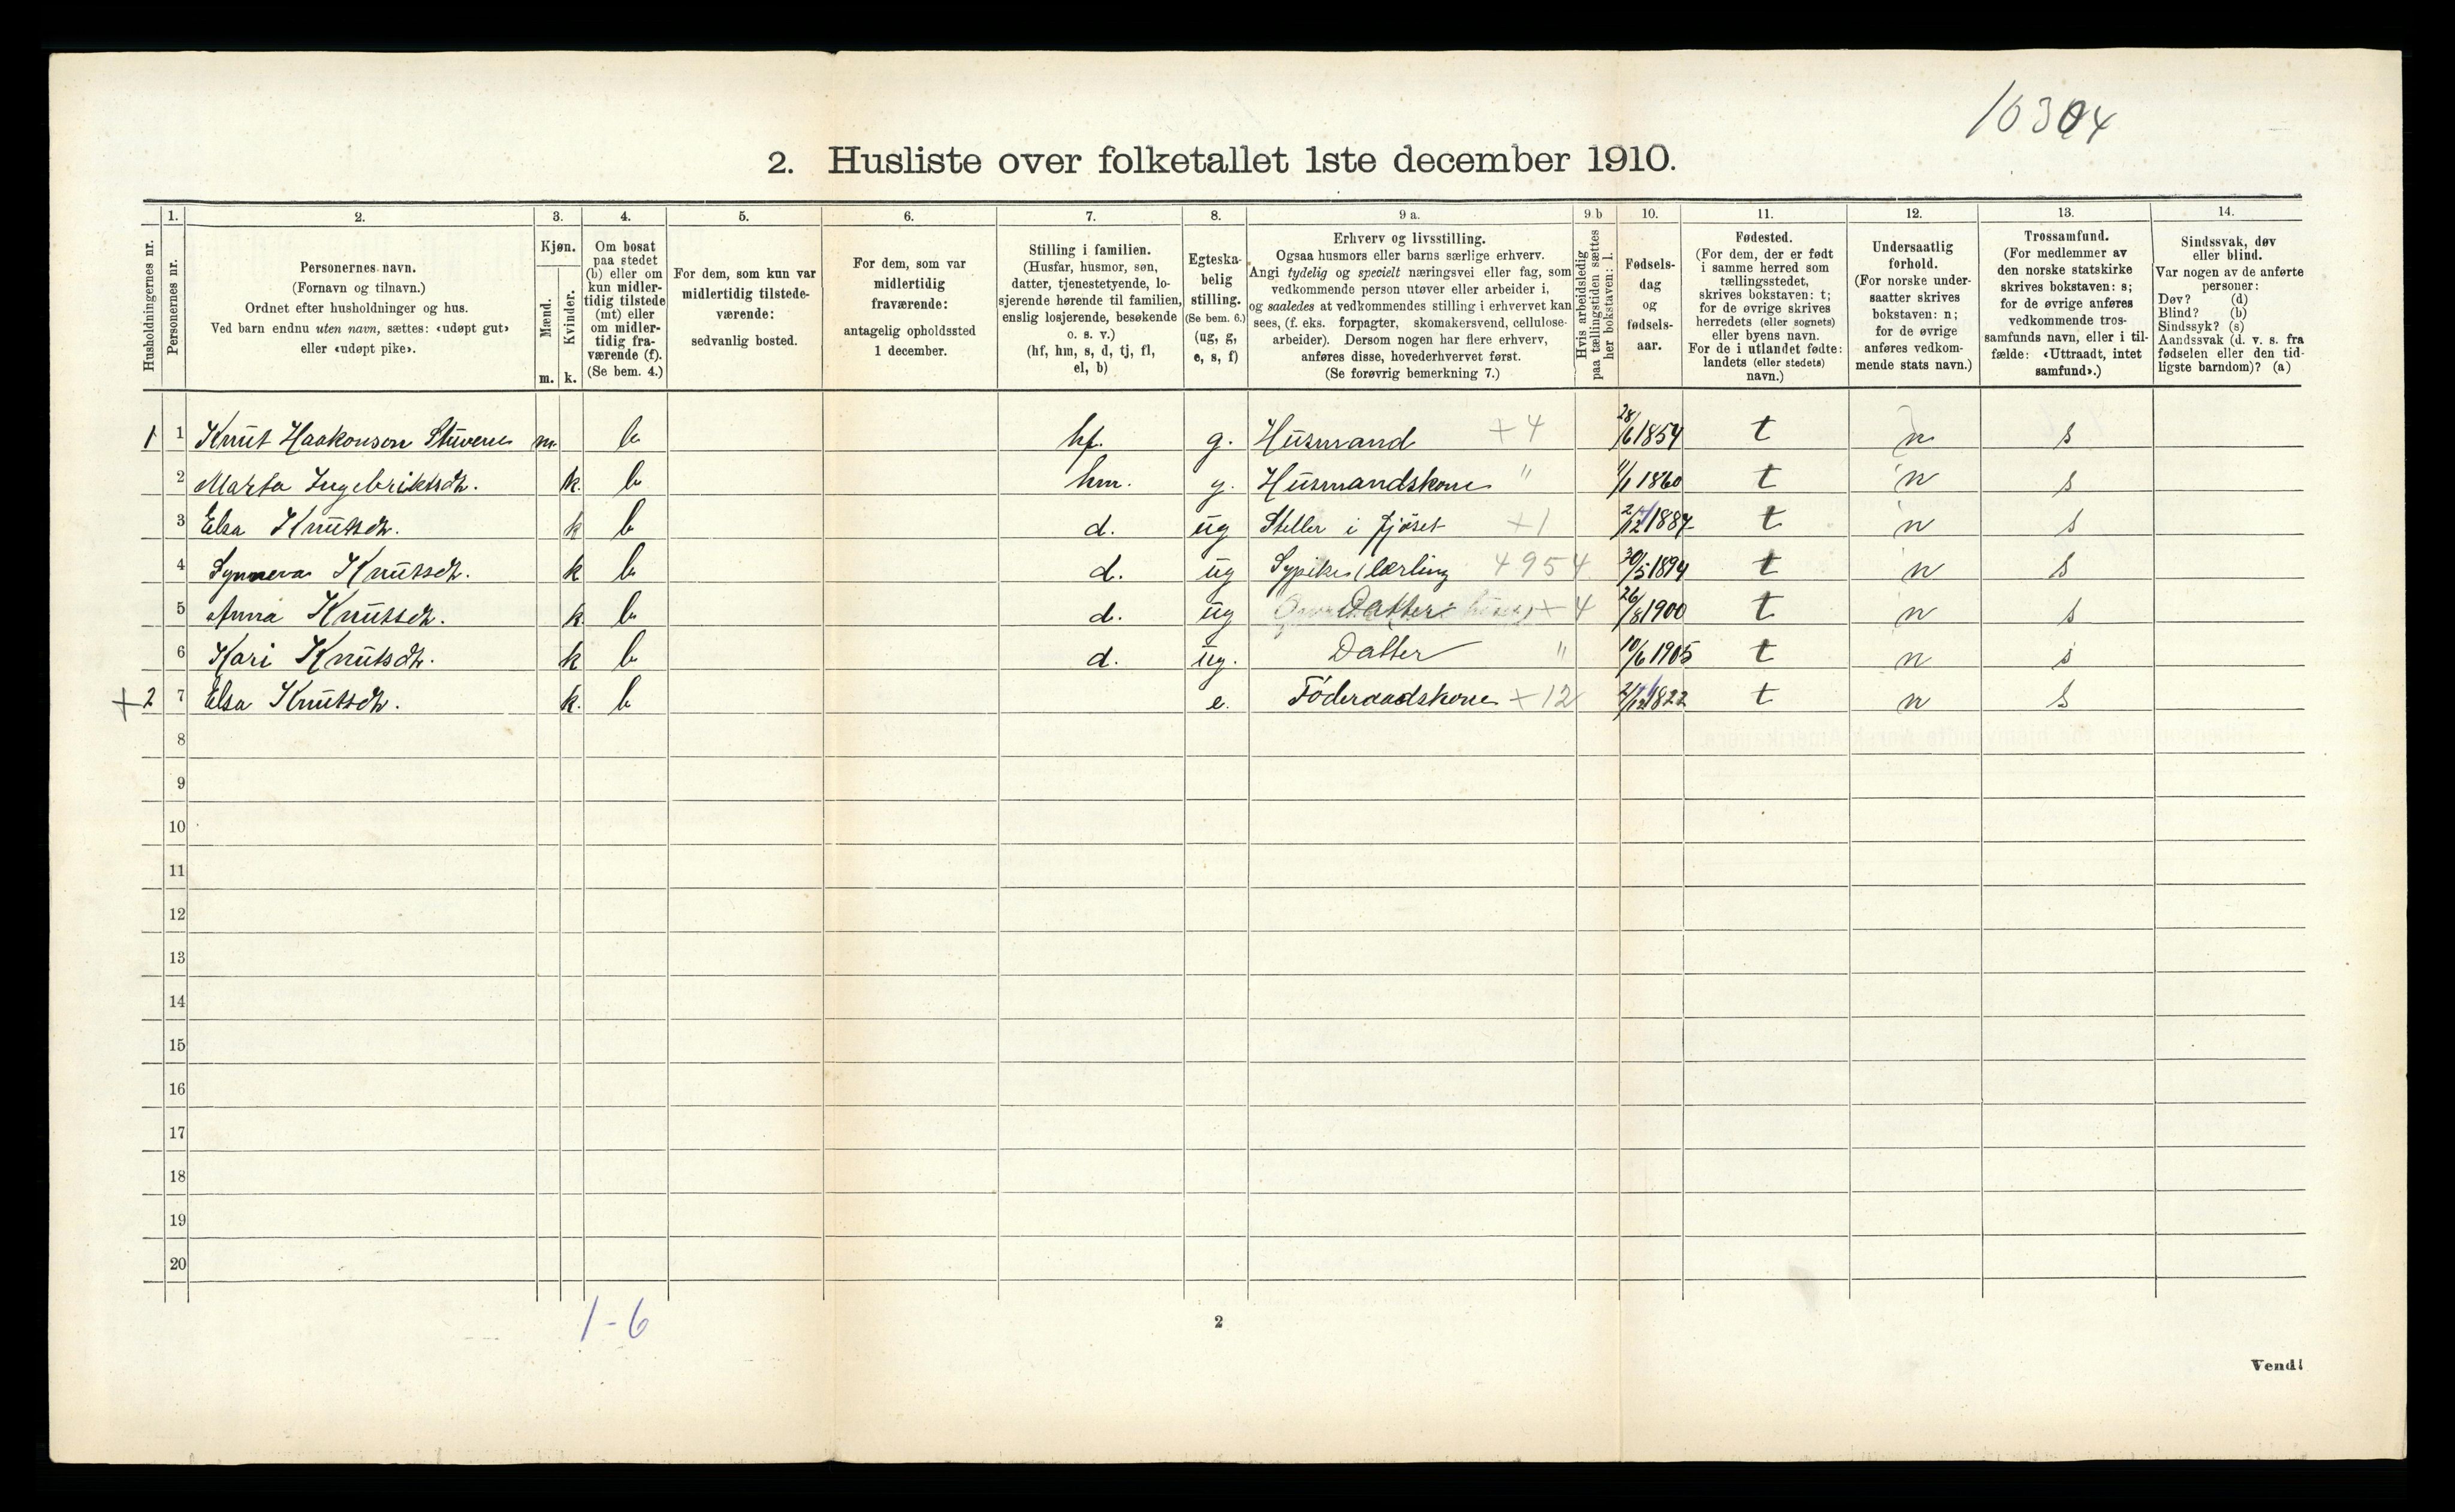 10304
2. Husliste over folketallet 1ste december 1910.
Husholdningernes nr.
1.
Personernes nr.
2.
Personernes navn.
(Fornavn og tilnavn.)
Ordnet efter husholdninger og hus.
Ved barn endnu uten navn, sættes: «udøpt gut»
eller «udøpt pike».
3.
Kjøn.
Mænd.
Kvinder.
m. k.
4.
Om bosat
paa stedet
(b) eller om
kun midler-
tidig tilstede
(mt) eller
om midler-
tidig fra-
værende (f).
(Se bem. 4.)
5.
For dem, som kun var
midlertidig tilstede-
værende:
sedvanlig bosted.
6.
For dem, som var
midlertidig
fraværende:
antagelig opholdssted
1 december.
7.
Stilling i familien.
(Husfar, husmor, søn,
datter, tjenestetyende, lo-
sjerende hørende til familien,
enslig losjerende, besøkende
o. s. v.)
(hf, hm, s, d, tj, fl,
el, b)
8.
Egteska-
belig
stilling.
(Se bem. 6.)
(ug, g,
e, s, f)
9 a.
Erhverv og livsstilling.
Ogsaa husmors eller barns særlige erhverv.
Angi tydelig og specielt næringsvei eller fag, som
vedkommende person utøver eller arbeider i,
og saaledes at vedkommendes stilling i erhvervet kan
sees, (f. eks. forpagter, skomakersvend, cellulose-
arbeider). Dersom nogen har flere erhverv,
anføres disse, hovederhvervet først.
(Se forøvrig bemerkning 7.)
9 b
Hvis arbeidsledig
paa tællingstiden sættes
her bokstaven: l.
10.
Fødsels-
dag
og
fødsels-
aar.
11.
Fødested.
(For dem, der er født
i samme herred som
tællingsstedet,
skrives bokstaven: t;
for de øvrige skrives
herredets (eller sognets)
eller byens navn.
For de i utlandet fødte:
landets (eller stedets)
navn.)
12.
Undersaatlig
forhold.
(For norske under-
saatter skrives
bokstaven: n;
for de øvrige
anføres vedkom-
mende stats navn.)
13.
Trossamfund.
(For medlemmer av
den norske statskirke
skrives bokstaven: s;
for de øvrige anføres
vedkommende tros-
samfunds navn, eller i til-
fælde: «Uttraadt, intet
samfund».)
14.
Sindssvak, døv
eller blind.
Var nogen av de anførte
personer:
Døv? (d)
Blind? (b)
Sindssyk? (s)
Aandssvak (d. v. s. fra
fødselen eller den tid-
ligste barndom)? (a)
1 1 Knut Haakonson Stuvene m b hf. g. Husmand + 4 28/6 1854 t n s
2 Marta Ingebriktsdtr. k b hm. g. Husmandskone " 1860 t n s
3 Elsa Knutsdtr. k b d. ug Steller i fjöset + 1 1884 t n s
4 Synneva Knutsdtr. k b d. ug Sypike (lærling 4954 30/5 1894 t n s
5 Anna Knutsdtr. k b d. ug Datter + 4 26/8 1900 t n s
6 Kari Knutsdtr. k b d. ug. Datter " 10/6 1905 t n s
+ 2 7 Elsa Knutsdtr. k. b e. Föderaadskone + 12 1822 t n s
8
9
10
11
12
13
14
15
16
17
18
19
20
1-6
2
Vend!